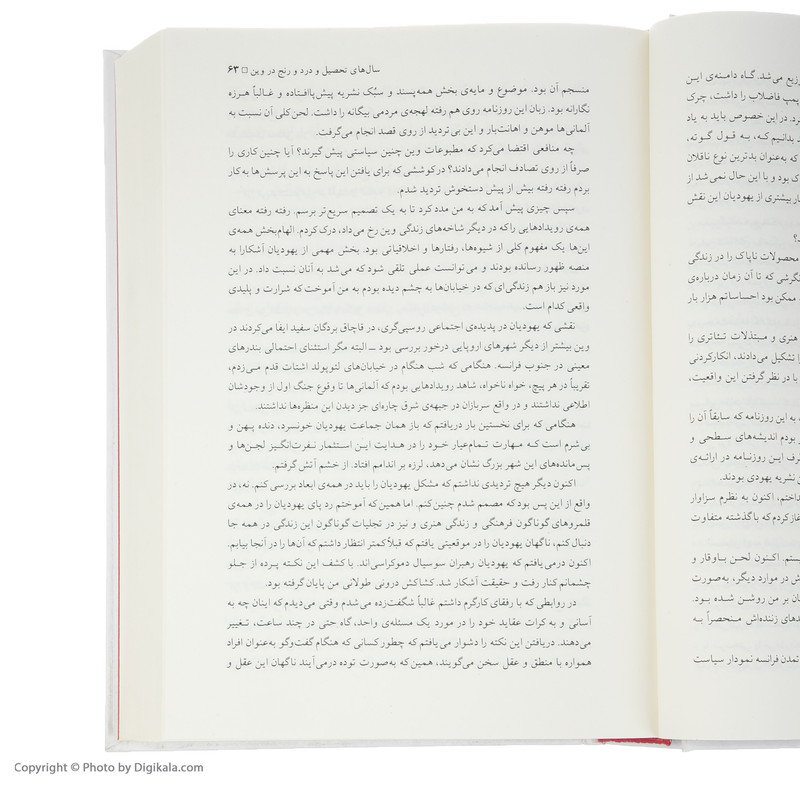 زیع می‌شد. گاه دامنه‌ی این
پمپ فاضلاب را داشت، چرک
رد. در این خصوص باید به یاد
بدانیم که، به قول گوته،
که به‌عنوان بدترین نوع ناقلان
ک بود و با این حال نمی‌شد از
ار بیشتری از یهودیان این نقش
؟
محصولات ناپاک را در زندگی
نگرشی که تا آن زمان درباره‌ی
ممکن بود احساساتم هزار بار
هنری و مبتذلات تئاتری را
را تشکیل می‌دادند، انکارکردنی
با در نظر گرفتن این واقعیت،
به این روزنامه که سابقاً آن را
بودم اندیشه‌های سطحی و
طرف این روزنامه در ارائه‌ی
نشریه یهودی بودند.
داختم، اکنون به نظرم سزاوار
غاز کردم که با گذشته متفاوت
یستم. اکنون لحن باوقار و
ش در موارد دیگر، به‌صورت
ن بر من روشن شده بود.
دهای زننده‌اش منحصراً به
تمدن فرانسه نمودار سیاست
سال‌های تحصیل و درد و رنج در وین □ ۶۳
منسجم آن بود. موضوع و مایه‌ی بخش همه‌پسند و سبُک نشریه پیش‌پاافتاده و غالباً هرزه
نگارانه بود. زبان این روزنامه روی هم رفته لهجه‌ی مردمی بیگانه را داشت. لحن کلی آن نسبت به
آلمانی‌ها موهن و اهانت‌بار و این بی‌تردید از روی قصد انجام می‌گرفت.
چه منافعی اقتضا می‌کرد که مطبوعات وین چنین سیاستی پیش گیرند؟ آیا چنین کاری را
صرفاً از روی تصادف انجام می‌دادند؟ در کوششی که برای یافتن این پاسخ به این پرسش‌ها به کار
بردم رفته رفته بیش از پیش دستخوش تردید شدم.
سپس چیزی پیش آمد که به من مدد کرد تا به یک تصمیم سریع‌تر برسم. رفته رفته معنای
همه‌ی رویدادهایی را که در دیگر شاخه‌های زندگی وین رخ می‌داد، درک کردم. الهام‌بخش همه‌ی
این‌ها یک مفهوم کلی از شیوه‌ها، رفتارها و اخلاقیاتی بود. بخش مهمی از یهودیان آشکارا به
منصه ظهور رسانده بودند و می‌توانست عملی تلقی شود که می‌شد به آنان نسبت داد. در این
مورد نیز باز هم زندگی‌ای که در خیابان‌ها به چشم دیده بودم به من آموخت که شرارت و پلیدی
واقعی کدام است.
نقشی که یهودیان در پدیده‌ی اجتماعی روسپی‌گری، در قاچاق بردگان سفید ایفا می‌کردند در
وین بیشتر از دیگر شهرهای اروپایی درخور بررسی بود ــ البته مگر استثنای احتمالی بندرهای
معینی در جنوب فرانسه. هنگامی که شب هنگام در خیابان‌های لئوپولد اشتات قدم می‌زدم،
تقریباً در هر پیچ، خواه ناخواه، شاهد رویدادهایی بودم که آلمانی‌ها تا وقوع جنگ اول از وجودشان
اطلاعی نداشتند و در واقع سربازان در جبهه‌ی شرق چاره‌ای جز دیدن این منظره‌ها نداشتند.
هنگامی که برای نخستین بار دریافتم که باز همان جماعت یهودیان خونسرد، دنده پهن و
بی‌شرم است که مهارت تمام‌عیار خود را در هدایت این استثمار نفرت‌انگیز لجن‌ها و
پس‌مانده‌های این شهر بزرگ نشان می‌دهد، لرزه بر اندامم افتاد. از خشم آتش گرفتم.
اکنون دیگر هیچ تردیدی نداشتم که مشکل یهودیان را باید در همه‌ی ابعاد بررسی کنم. نه، در
واقع از این پس بود که مصمم شدم چنین کنم. اما همین که آموختم رد پای یهودیان را در همه‌ی
قلمروهای گوناگون فرهنگی و زندگی هنری و نیز در تجلیات گوناگون این زندگی در همه جا
دنبال کنم، ناگهان یهودیان را در موقعیتی یافتم که قبلاً کمتر انتظار داشتم که آن‌ها را در آنجا بیابم.
اکنون درمی‌یافتم که یهودیان رهبران سوسیال دموکراسی‌اند. با کشف این نکته پرده از جلو
چشمانم کنار رفت و حقیقت آشکار شد. کشاکش درونی طولانی من پایان گرفته بود.
در روابطی که با رفقای کارگرم داشتم غالباً شگفت‌زده می‌شدم وقتی می‌دیدم که اینان چه به
آسانی و به کرات عقاید خود را در مورد یک مسئله‌ی واحد، گاه حتی در چند ساعت، تغییر
می‌دهند. دریافتن این نکته را دشوار می‌یافتم که چطور کسانی که هنگام گفت‌وگو به‌عنوان افراد
همواره با منطق و عقل سخن می‌گویند، همین که به‌صورت توده درمی‌آیند ناگهان این عقل و
Copyright © Photo by Digikala.com